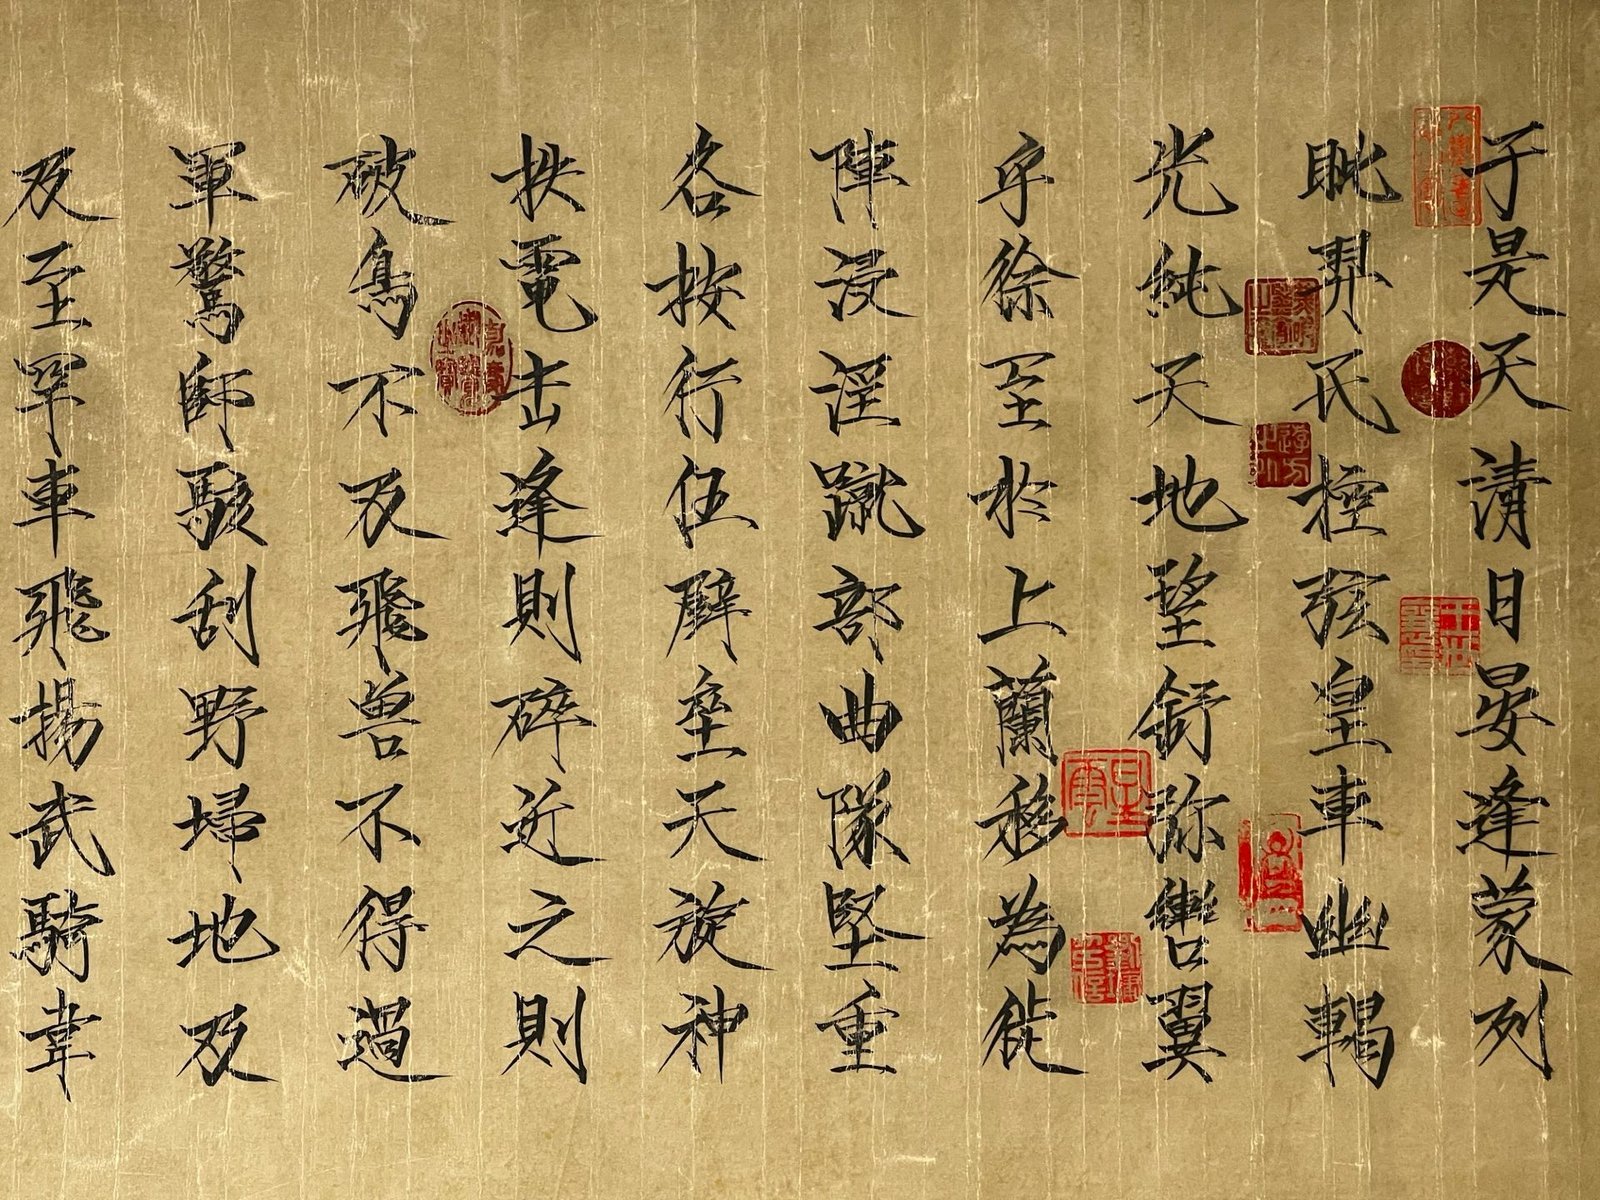 于是天清日晏逢蒙列
眦羿氏控弦皇車幽輵
光純天地望舒弥轡翼
乎徐至於上蘭移為徙
陣浸淫蹴部曲隊堅重
各按行伍壁垒天旋神
抶電击逢則碎近之則
破鳥不及飛兽不得過
軍驚師駭刮野埽地及
及至罕車飛揚武騎聿